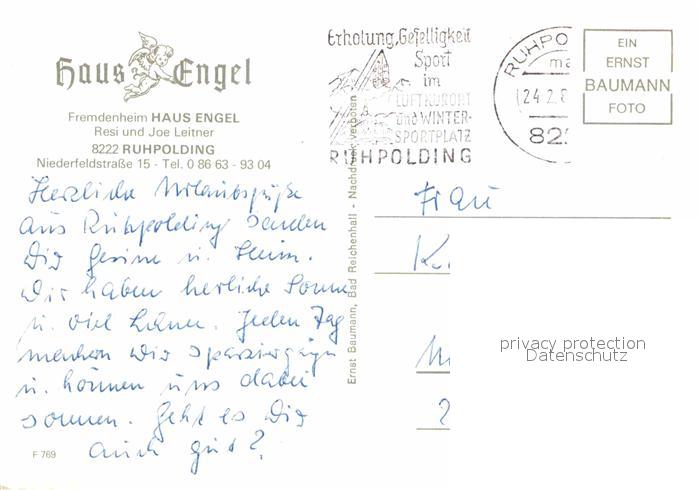 Haus Engel
Fremdenheim HAUS ENGEL
Resi und Joe Leitner
8222 RUHPOLDING
Niederfeldstraße 15 - Tel. 0 86 63 - 93 04
Herzliche Urlaubsgrüße
aus Ruhpolding senden
Dir Gesine u. Heim.
Wir haben herrliche Sonne
u. viel Schnee. Jeden Tag
machen wir Spaziergänge
u. können uns dabei
sonnen. Geht es Dir
auch gut?
F 769
Ernst Baumann, Bad Reichenhall - Nachdruck verboten
Erholung, Geselligkeit
Sport
im
LUFTKURORT
und WINTER-
SPORTPLATZ
RUHPOLDING
RUHPO
24.2.8
822
EIN
ERNST
BAUMANN
FOTO
Frau
K
privacy protection
Datenschutz